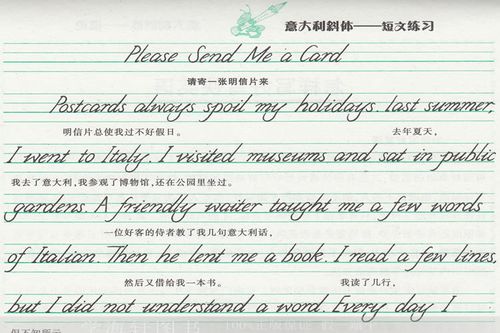 意大利斜体——短文练习
Please Send Me a Card
请寄一张明信片来
Postcards always spoil my holidays. last summer,
明信片总使我过不好假日。 去年夏天,
I went to Italy. I visited museums and sat in public
我去了意大利,我参观了博物馆,还在公园里坐过。
gardens. A friendly waiter taught me a few words
一位好客的侍者教了我几句意大利话,
of Italian. Then he lent me a book. I read a few lines,
然后又借给我一本书。 我读了几行,
but I did not understand a word. Every day I